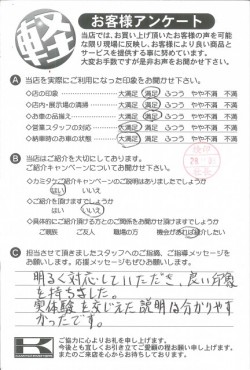 軽
お客様アンケート
当店では、お買い上げ頂いたお客様の声を可能
な限り現場に反映し、お客様により良い商品と
サービスを提供する事に努めています。
大変お手数ですが是非お声をお聞かせ下さい。
A 当店を実際にご利用になった印象をお聞かせ下さい。
◇店の印象 大満足 満足 ふつう やや不満 不満
◇店内・展示場の清掃 大満足 満足 ふつう やや不満 不満
◇お車の品揃え 大満足 満足 ふつう やや不満 不満
◇営業スタッフの対応 大満足 満足 ふつう やや不満 不満
◇納車時のお車の状態 大満足 満足 ふつう やや不満 不満
B 当店はご紹介を大切にしております。
ご紹介キャンペーンについてお聞かせ下さい。
◇カミタケご紹介キャンペーンのご説明はありましたでしょうか
はい いいえ
◇ご紹介を頂けますでしょうか
はい いいえ
◇具体的にご紹介頂ける方とのご関係をお聞かせ頂けますでしょうか
ご親族 ご友人 職場の方 機会があれば紹介したい
C 担当させて頂きましたスタッフへのご指摘、ご指導メッセージを
お願いします。応援メッセージもぜひお願いします。
明るく対応していただき、良い印象
を持ちました。
実体験を交じえた説明は分かりやす
かったです。
K
ご協力に心よりお礼を申し上げます。
今後とも宜しくお引き立てご愛顧の程お願い申し上げます。
またのご来店を心からお待ちしております。